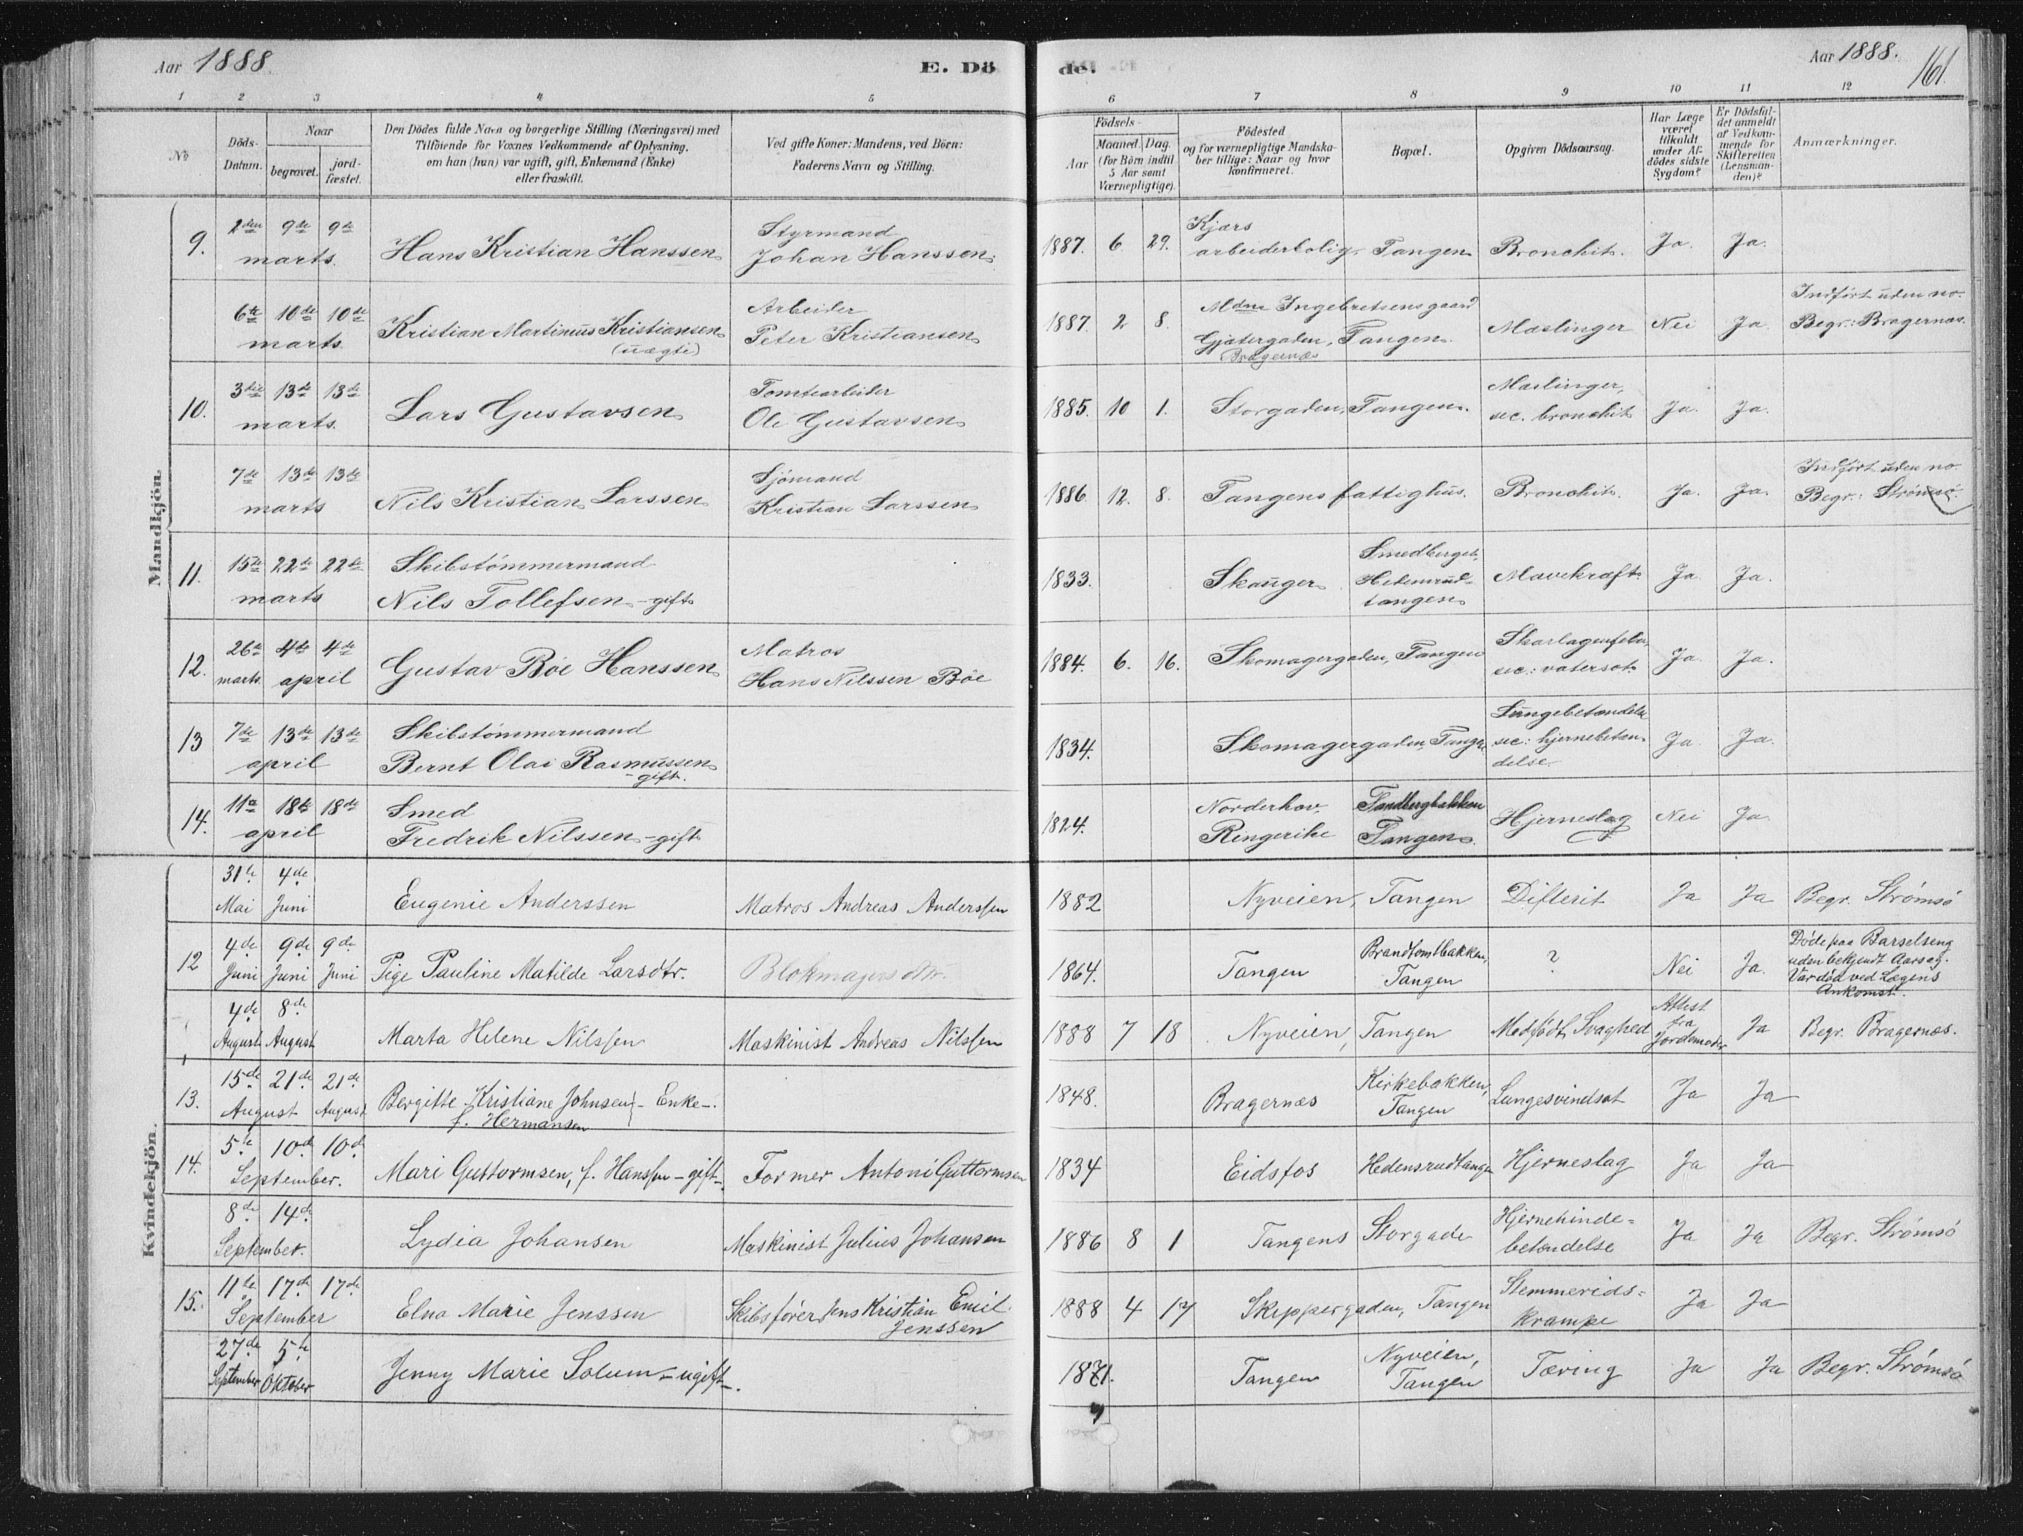 Aar 1888.
E. Dö
de.
Aar 1888.
161.
1 2 3 4 5 6 7 8 9 10 11 12
No
Döds-Datum.
Naar
begravet.
jord-fæstet.
Den Dödes fulde Navn og borgerlige Stilling (Næringsvei) med
Tilföiende for Voxnes Vedkommende af Oplysning,
om han (hun) var ugift, gift, Enkemand (Enke)
eller fraskilt.
Ved gifte Koner: Mandens, ved Börn:
Faderens Navn og Stilling.
Födsels-
Aar
Maaned. Dag.
(for Börn indtil
5 Aar samt
Værnepligtige).
Födested
og for værnepligtige Mandska-
ber tillige: Naar og hvor
konfirmeret.
Bopæl.
Opgiven Dödsaarsag.
Har Læge
været
tilkaldt
under Af-
dödes sidste
Sygdom?
Er Dödsfal-
det anmeldt
af Vedkom-
mende for
Skifteretten
(Lensman-
den)?
Anmærkninger.
Mandkjön.
9. 2den marts 9de 9de Hans Kristian Hanssen Styrmand Johan Hanssen. 1887. 6 29. Kjærs arbeiderbolig, Tangen Bronchit. Ja. Ja.
6te marts 10de 10de Kristian Martinus Kristiansen (uægte) Arbeider Peter Kristiansen 1887. 2 8. Mdme Ingebretsens gaard Gjætergaden, Tangen. Bragernæs Mæslinger Nei Ja Indført uden no. Begr: Bragernæs.
10. 3die marts 13de 13de Lars Gustavsen Tomtearbeider Ole Gustavsen 1885. 10 1. Storgaden, Tangen. Mæslinger, sec. bronchit Ja. Ja.
7de marts 13de 13de Nils Kristian Larssen Sjömand Kristian Larssen 1886 12. 8. Tangens fattighus. Bronchit. Ja. Ja. Indført uden no Begr: Strømsö
11. 15de marts 22de 22de Skibstømmermand Nils Tollefsen - gift 1833. Skauger Smedberget, Hedensrud-tangen Mavekræft Ja. Ja.
12. 26de marts 4de 4de april Gustav Böe Hanssen Matros Hans Nilssen Böe 1884. 6. 16. Skomagergaden, Tangen Skarlagenfeber, sec: vatersot. Ja. Ja.
13 7de april 13de 13de Skibstømmermand Bernt Olai Rasmussen - gift. 1834. Skomagergaden Tangen Lungebetændelse sec: hjernebetæn-delse Ja Ja.
14. 11te april 18de 18de Smed Fredrik Nilssen - gift 1824. Norderhov, Ringerike Tandbergbakken Tangen. Hjerneslag Nei Ja
Kvindekjön.
31te Mai 4de Juni Eugenie Anderssen Matros Andreas Anderssen 1882 Nyveien, Tangen Difterit Ja Ja Begr. Strømsö
12 4de Juni 9de Juni 9de Juni Pige Pauline Matilde Larsdtr. Blokmagers dtr. 1864. Tangen Brandtomtbakken, Tangen ? Nei Ja Døde paa Barselseng uden bekjendt Aarsag. Var død ved Lægens Ankomst.
4de August 8de August Marta Helene Nilssen Maskinist Andreas Nilssen 1888 7 18 Nyveien, Tangen Medfødt Svaghed Attest fra Jordemoder Ja Begr. Bragernæs.
13. 15de August 21de 21de August Bergitte Kristiane Johnsen - Enke -. f. Hermansen 1848. Bragernæs Kirkebakken, Tangen Lungesvindsot Ja Ja
14. 5te September. 10de 10de Mari Guttormsen, f. Hanssen - gift -. Former Antoni Guttormsen 1834 Eidsfos Hedensrudtangen Hjerneslag Ja Ja
8de September. 14de Lydia Johansen Maskinist Julius Johansen 1886 8 1 Tangens Storgade Hjernehinde=betændelse Ja Ja Begr. Strømsö
15. 11te September 17de 17de Elna Marie Jenssen Skibsfører Jens Kristian Emil Jenssen 1888 4 17 Skippergaden, Tangen Stemmerids=krampe Ja Ja
27de September 5te Oktober Jenny Marie Solum - ugift -. 1871. Tangen Nyveien, Tangen Tæring Ja Ja Begr. Strømsö